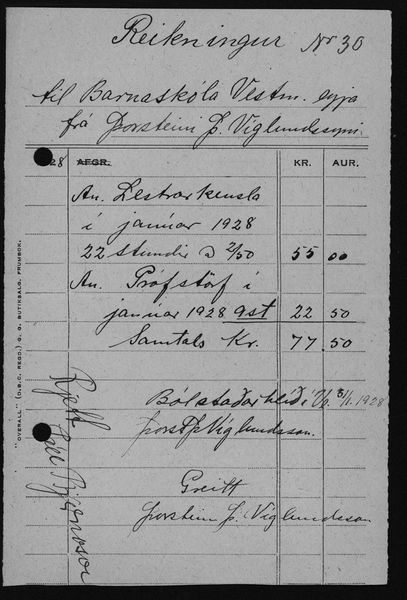 Reikningur Nr 30
til Barnaskóla Vestm. eyja
frá Þorsteini Þ. Víglundssyni.
28 AFGR. KR. AUR.
An. Lestrarkensla
í janúar 1928
22 stundir á 2/50 55 00
An. Prófstörf í
janúar 1928 9 st 22 50
Samtals Kr. 77 50
Bólstaðarhlíð í 31/1. 1928
Þorst Þ. Víglundsson.
Greitt
Þorsteinn Þ. Víglundsson
Rjett
Páll Bjarnason
"OVERALL" (D.B.C. REGD.) G. G. BUTIKSALG. FRUMBOK.